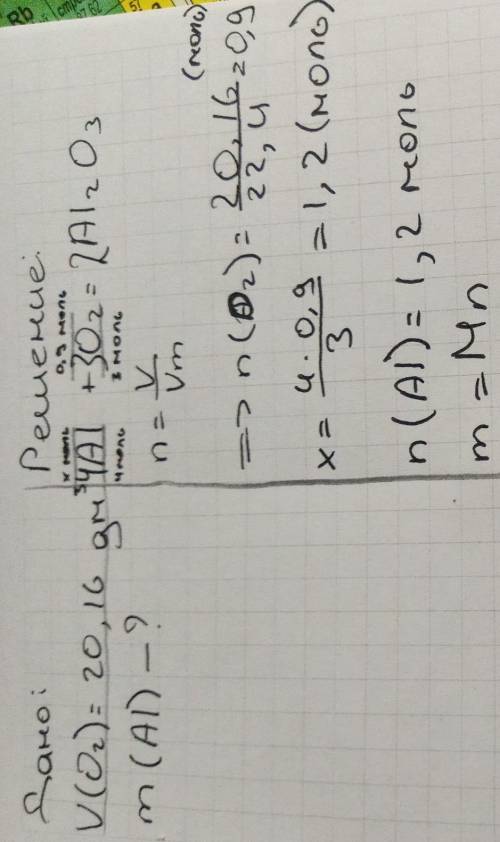 Rb
51
Дано:
V(O₂) = 20,16 дм³
m(Al) — ?
Решение:
x моль 0,9 моль
4Al + 3O₂ = 2Al₂O₃
4 моль 3 моль
n = V/Vm
=> n(O₂) = 20,16/22,4 = 0,9 (моль)
x = 4·0,9/3 = 1,2 (моль)
n(Al) = 1,2 моль
m = Mn